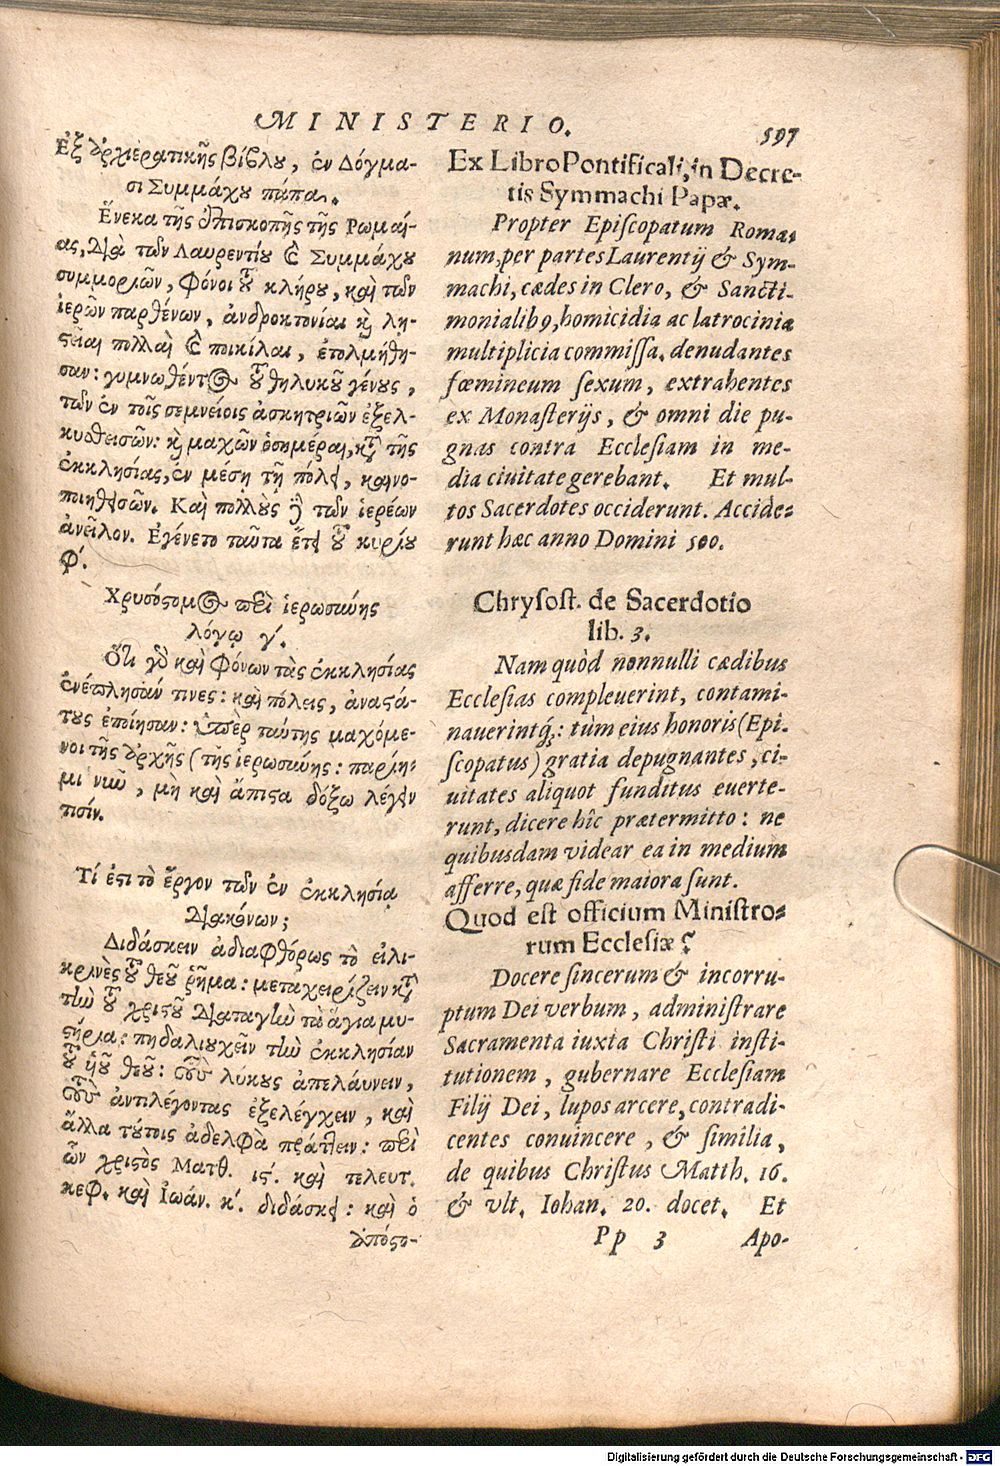 MINISTERIO. 597
Ἐξ ἀρχιερατικῆς βίβλου, ἐν Δόγμα-
σι Συμμάχου πάπα.
Ἕνεκα τῆς ἐπισκοπῆς τῆς Ρωμαί-
ας, διὰ τῶν Λαυρεντίου καὶ Συμμάχου
συμμοριῶν, φόνοι τοῦ κλήρου, καὶ τῶν
ἱερῶν παρθένων, ἀνδροκτονίαι καὶ λῃ-
στεῖαι πολλαὶ καὶ ποικίλαι, ἐτολμήθη-
σαν: γυμνωθέντος τοῦ θηλυκοῦ γένους,
τῶν ἐν τοῖς σεμνείοις ἀσκητριῶν ἐξελ-
κυσθεισῶν: καὶ μαχῶν ὁσημέραι, κατὰ τῆς
ἐκκλησίας, ἐν μέσῃ τῇ πόλει, καινο-
ποιηθεισῶν. Καὶ πολλοὺς δὲ τῶν ἱερέων
ἀνεῖλον. Ἐγένετο ταῦτα ἔτει τοῦ κυρίου
φ´.
Χρυσόστομος περὶ ἱερωσύνης
λόγῳ γ´.
Ὅτι γὰρ καὶ φόνων τὰς ἐκκλησίας
ἐνέπλησάν τινες: καὶ πόλεις, ἀναστά-
τους ἐποίησαν: ὑπὲρ ταύτης μαχόμε-
νοι τῆς ἀρχῆς (τῆς ἱερωσύνης: παρίη-
μι νῦν, μὴ καὶ ἄπιστα δόξω λέγειν
τισίν.
Τί ἐστι τὸ ἔργον τῶν ἐν ἐκκλησίᾳ
διακόνων;
Διδάσκειν ἀδιαφθόρως τὸ εἰλι-
κρινὲς τοῦ θεοῦ ῥῆμα: μεταχειρίζειν κατὰ
τὴν τοῦ χριστοῦ διαταγὴν τὰ ἅγια μυ-
στήρια: πηδαλιουχεῖν τὴν ἐκκλησίαν
τοῦ υἱοῦ θεοῦ: τοὺς λύκους ἀπελαύνειν,
τοὺς ἀντιλέγοντας ἐξελέγχειν, καὶ
ἄλλα τούτοις ἀδελφὰ πράττειν: περὶ
ὧν χριστὸς Ματθ. ιϛ´. καὶ τελευτ.
κεφ. καὶ Ἰωάν. κ´. διδάσκει: καὶ ὁ
ἀπόστο-
Ex Libro Pontificali, in Decre-
tis Symmachi Papæ.
Propter Episcopatum Roma-
num, per partes Laurentij & Sym-
machi, cædes in Clero, & Sancti-
monialibꝰ, homicidia ac latrocinia
multiplicia commissa, denudantes
fœmineum sexum, extrahentes
ex Monasterijs, & omni die pu-
gnas contra Ecclesiam in me-
dia ciuitate gerebant. Et mul-
tos Sacerdotes occiderunt. Accide-
runt hæc anno Domini 500.
Chrysost. de Sacerdotio
lib. 3.
Nam quòd nonnulli cædibus
Ecclesias compleuerint, contami-
nauerintq́;: tùm eius honoris (Epi-
scopatus) gratia depugnantes, ci-
uitates aliquot funditus euerte-
runt, dicere hîc prætermitto: ne
quibusdam videar ea in medium
afferre, quæ fide maiora sunt.
Quod est officium Ministro-
rum Ecclesiæ?
Docere sincerum & incorru-
ptum Dei verbum, administrare
Sacramenta iuxta Christi insti-
tutionem, gubernare Ecclesiam
Filij Dei, lupos arcere, contradi-
centes conuincere, & similia,
de quibus Christus Matth. 16.
& vlt. Iohan. 20. docet. Et
Pp 3 Apo-
Digitalisierung gefördert durch die Deutsche Forschungsgemeinschaft - DFG